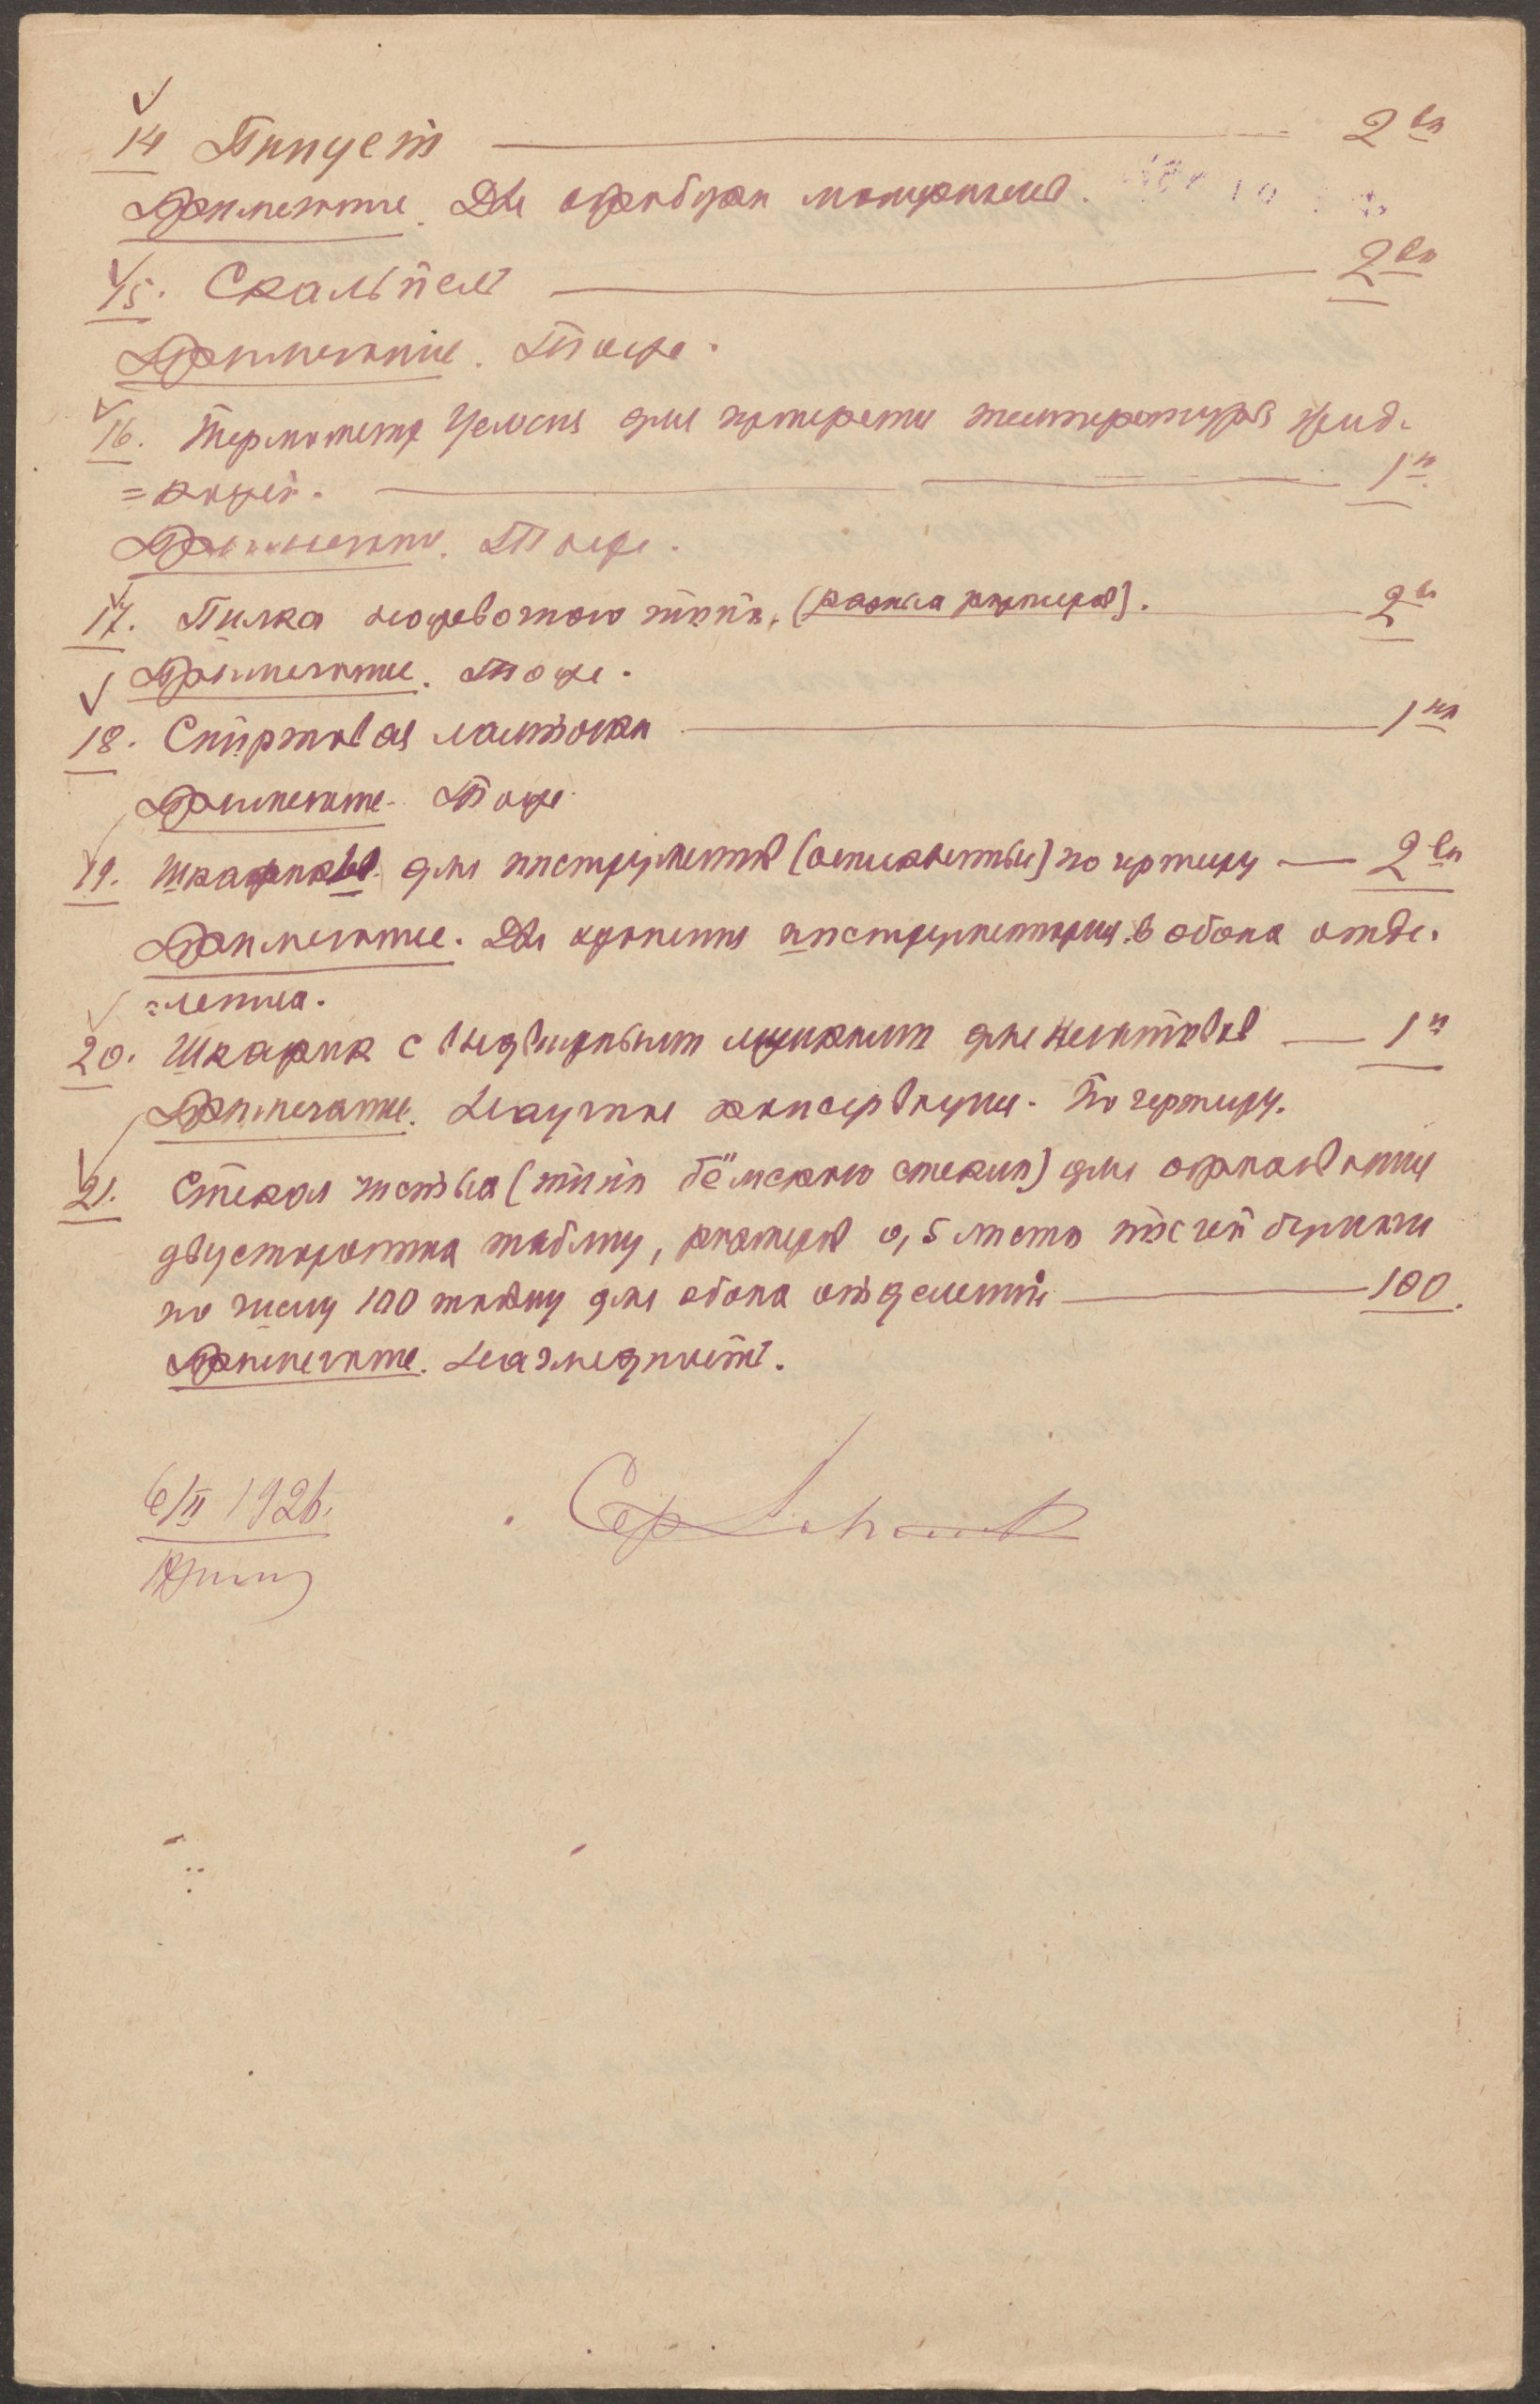 14 Пинцет — 2ва
Примечание. Для обработки материалов.
15. Скальпель — 2ва
Примечание. Тоже.
16. Термометр Цельсия для измерения температуры жид-
=костей. — 1н
Примечание. Тоже.
17. Пилка ножевочного типа, (разных размеров). — 2ва
Примечание. Тоже.
18. Спиртовая лампочка — 1на
Примечание. Тоже.
19. Шкафиков для инструментов (остеклённых) по чертежу — 2ва
Примечание. Для хранения инструментария в обоих отде-
=лениях.
20. Шкафик с выдвижными ящиками для негативов — 1н
Примечание. Научная консервация. По чертежу.
21. Стекол чистых (типа бёмского стекла) для окантовки
двусторонних таблиц, размеров 0,5 листа писчей бумаги
по числу 100 таблиц для обоих отделений — 100.
Примечание. На экспонаты.
6/II 1926.